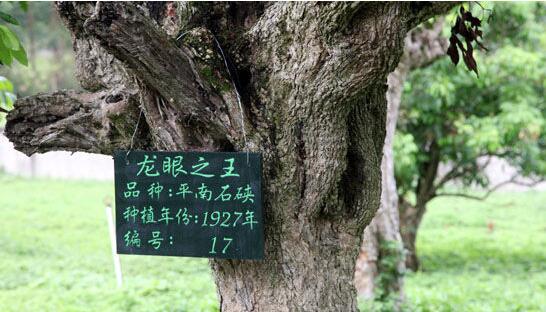 龙眼之王
品种:平南石硖
种植年份:1927年
编号: 17